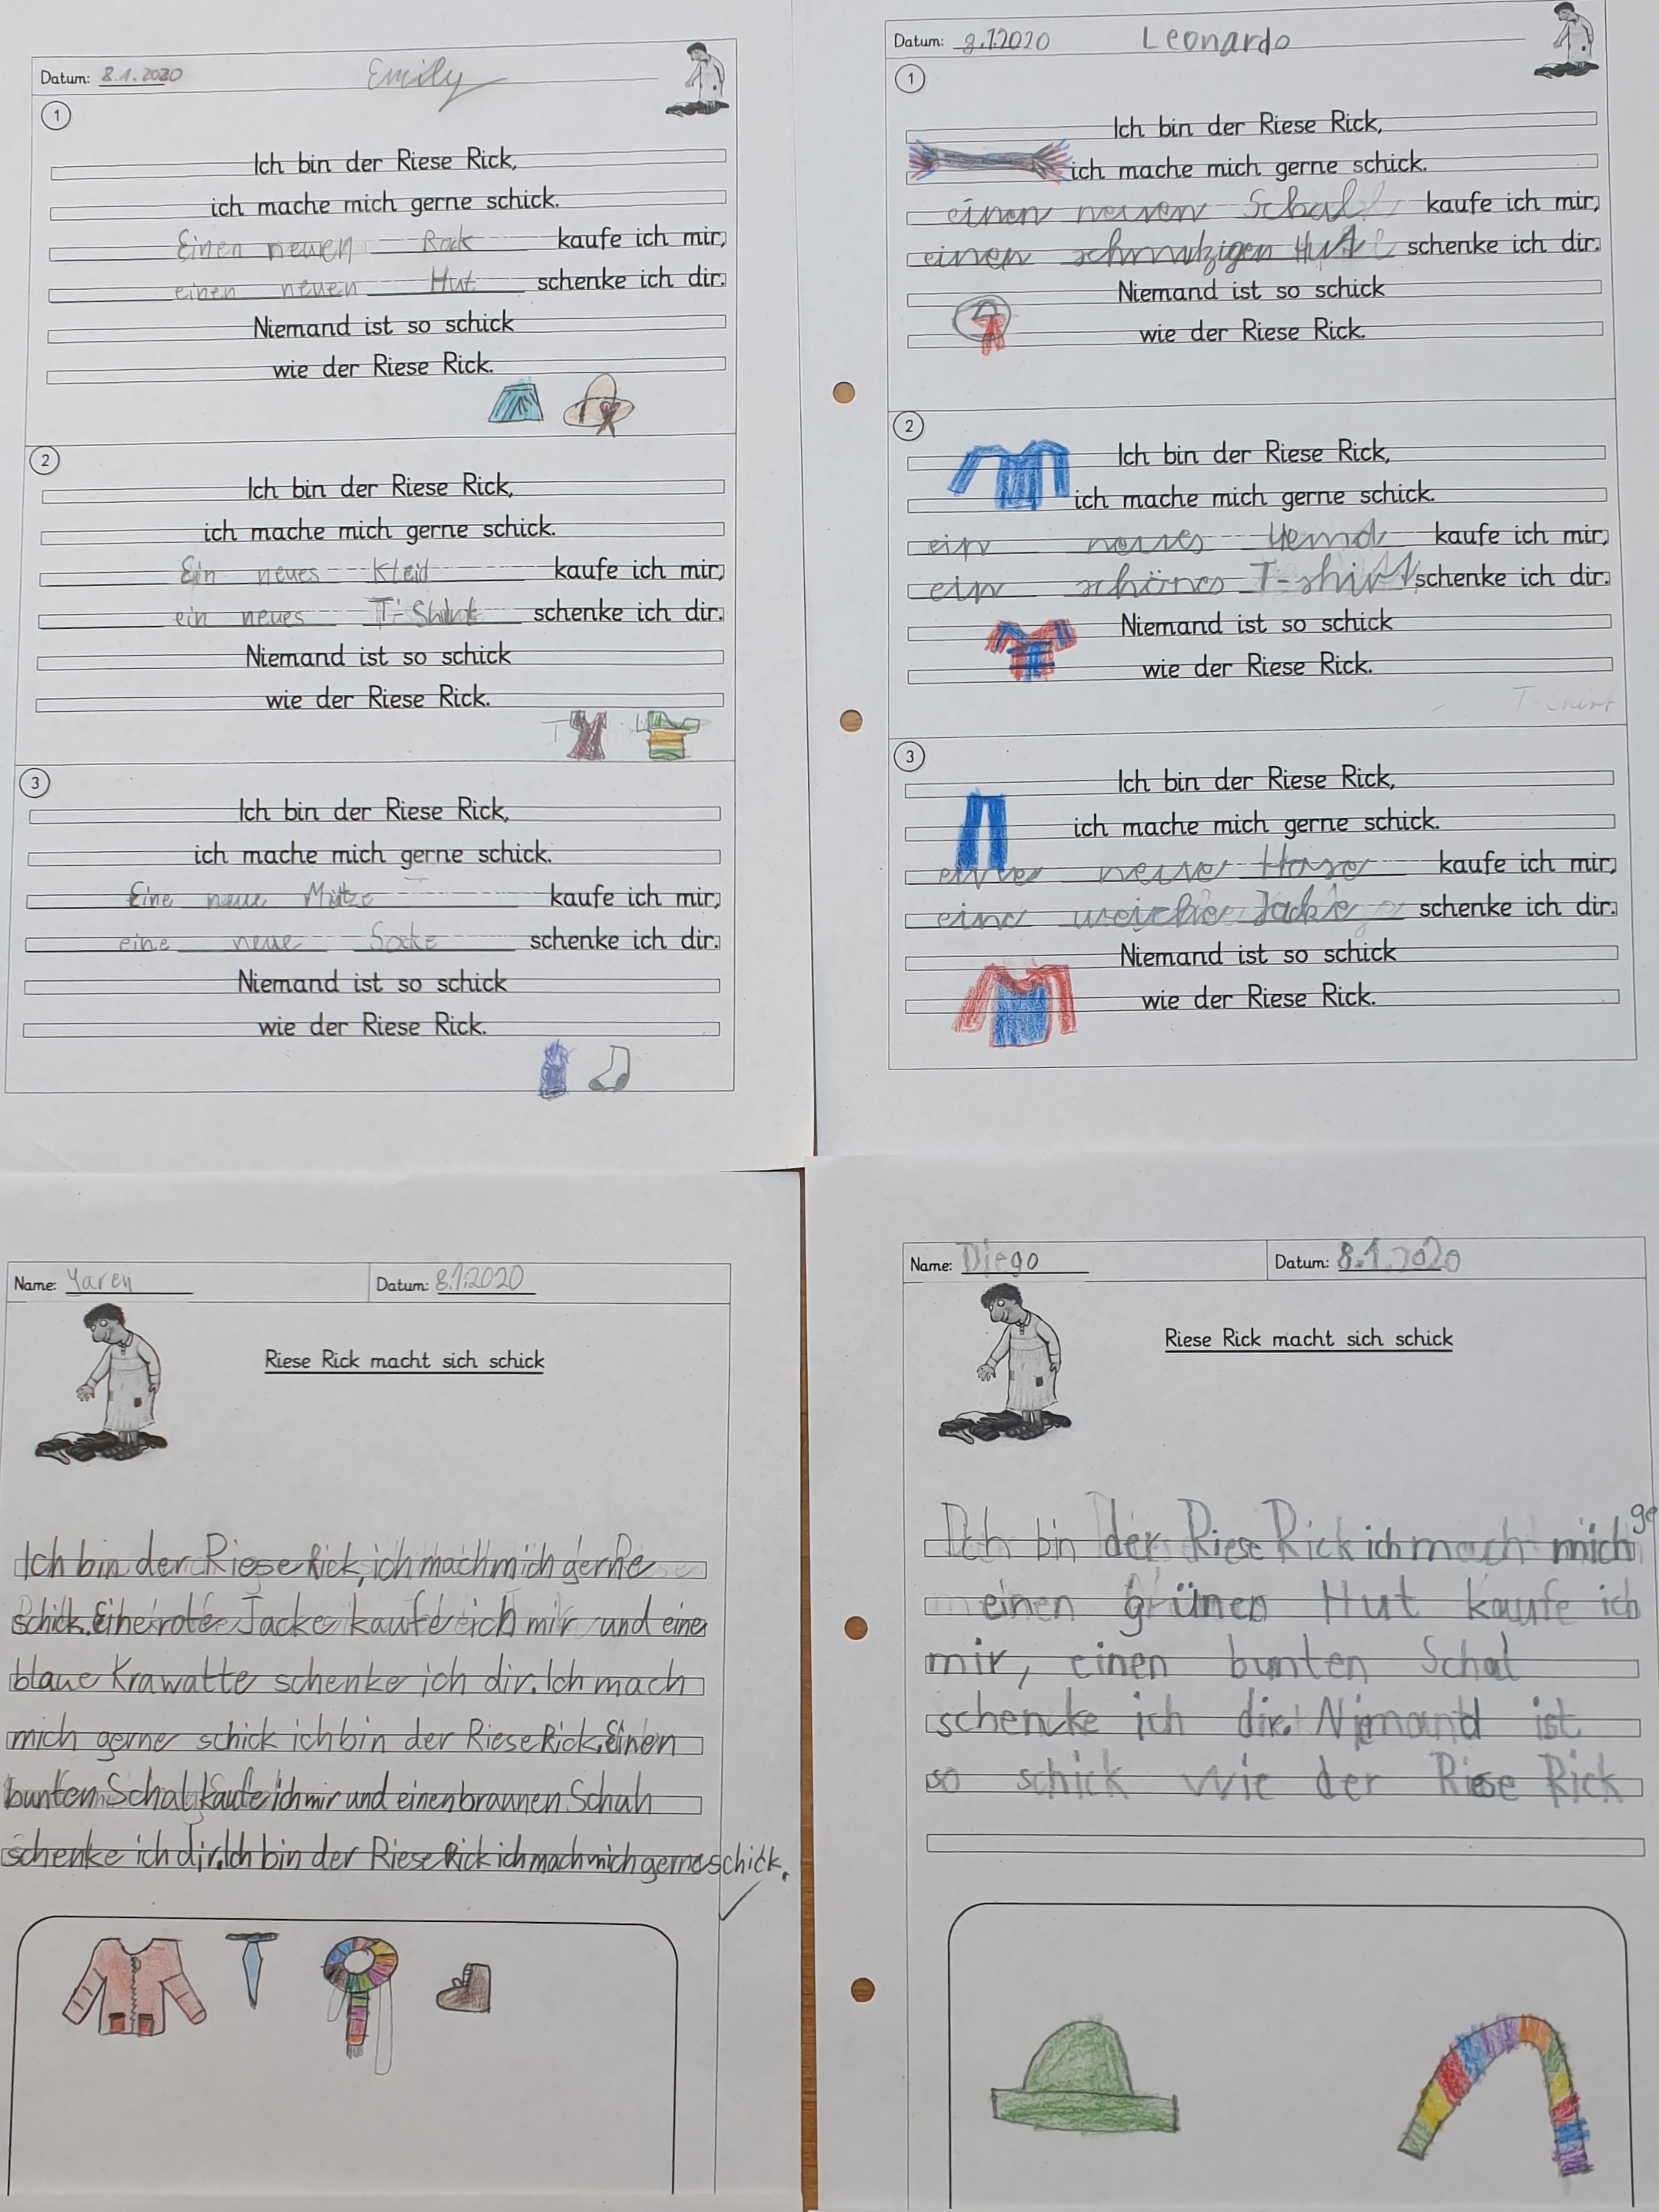 Datum: 8.1.2020 Emily
1
Ich bin der Riese Rick,
ich mache mich gerne schick.
Einen neuen Rock kaufe ich mir,
einen neuen Hut schenke ich dir.
Niemand ist so schick
wie der Riese Rick.
2
Ich bin der Riese Rick,
ich mache mich gerne schick.
Ein neues Kleid kaufe ich mir,
ein neues schenke ich dir.
Niemand ist so schick
wie der Riese Rick.
3
Ich bin der Riese Rick,
ich mache mich gerne schick.
Eine neue Mütze kaufe ich mir,
eine neue Socke schenke ich dir.
Niemand ist so schick
wie der Riese Rick.
Datum: 8.1.2020 Leonardo
1
Ich bin der Riese Rick,
ich mache mich gerne schick.
einen neuen Schal kaufe ich mir,
einen schmutzigen Hut schenke ich dir.
Niemand ist so schick
wie der Riese Rick.
2
Ich bin der Riese Rick,
ich mache mich gerne schick.
ein neues Hemd kaufe ich mir,
ein schönes T-shirt schenke ich dir.
Niemand ist so schick
wie der Riese Rick.
3
Ich bin der Riese Rick,
ich mache mich gerne schick.
eine neue Hose kaufe ich mir,
eine weiche Jacke schenke ich dir.
Niemand ist so schick
wie der Riese Rick.
Name: Yaren Datum: 8.1.2020
Riese Rick macht sich schick
Ich bin der Riese Rick, ich mach mich gerne
schick. Eine rote Jacke kaufe ich mir und eine
blaue Krawatte schenke ich dir. Ich mach
mich gerne schick ich bin der Riese Rick. Einen
bunten Schal kaufe ich mir und einen braunen Schuh
schenke ich dir. Ich bin der Riese Rick ich mach mich gerne schick.
Name: Diego Datum: 8.1.2020
Riese Rick macht sich schick
Ich bin der Riese Rick ich mach mich ge
einen grünen Hut kaufe ich
mir, einen bunten Schal
schencke ich dir. Niemand ist
so schick wie der Riese Rick